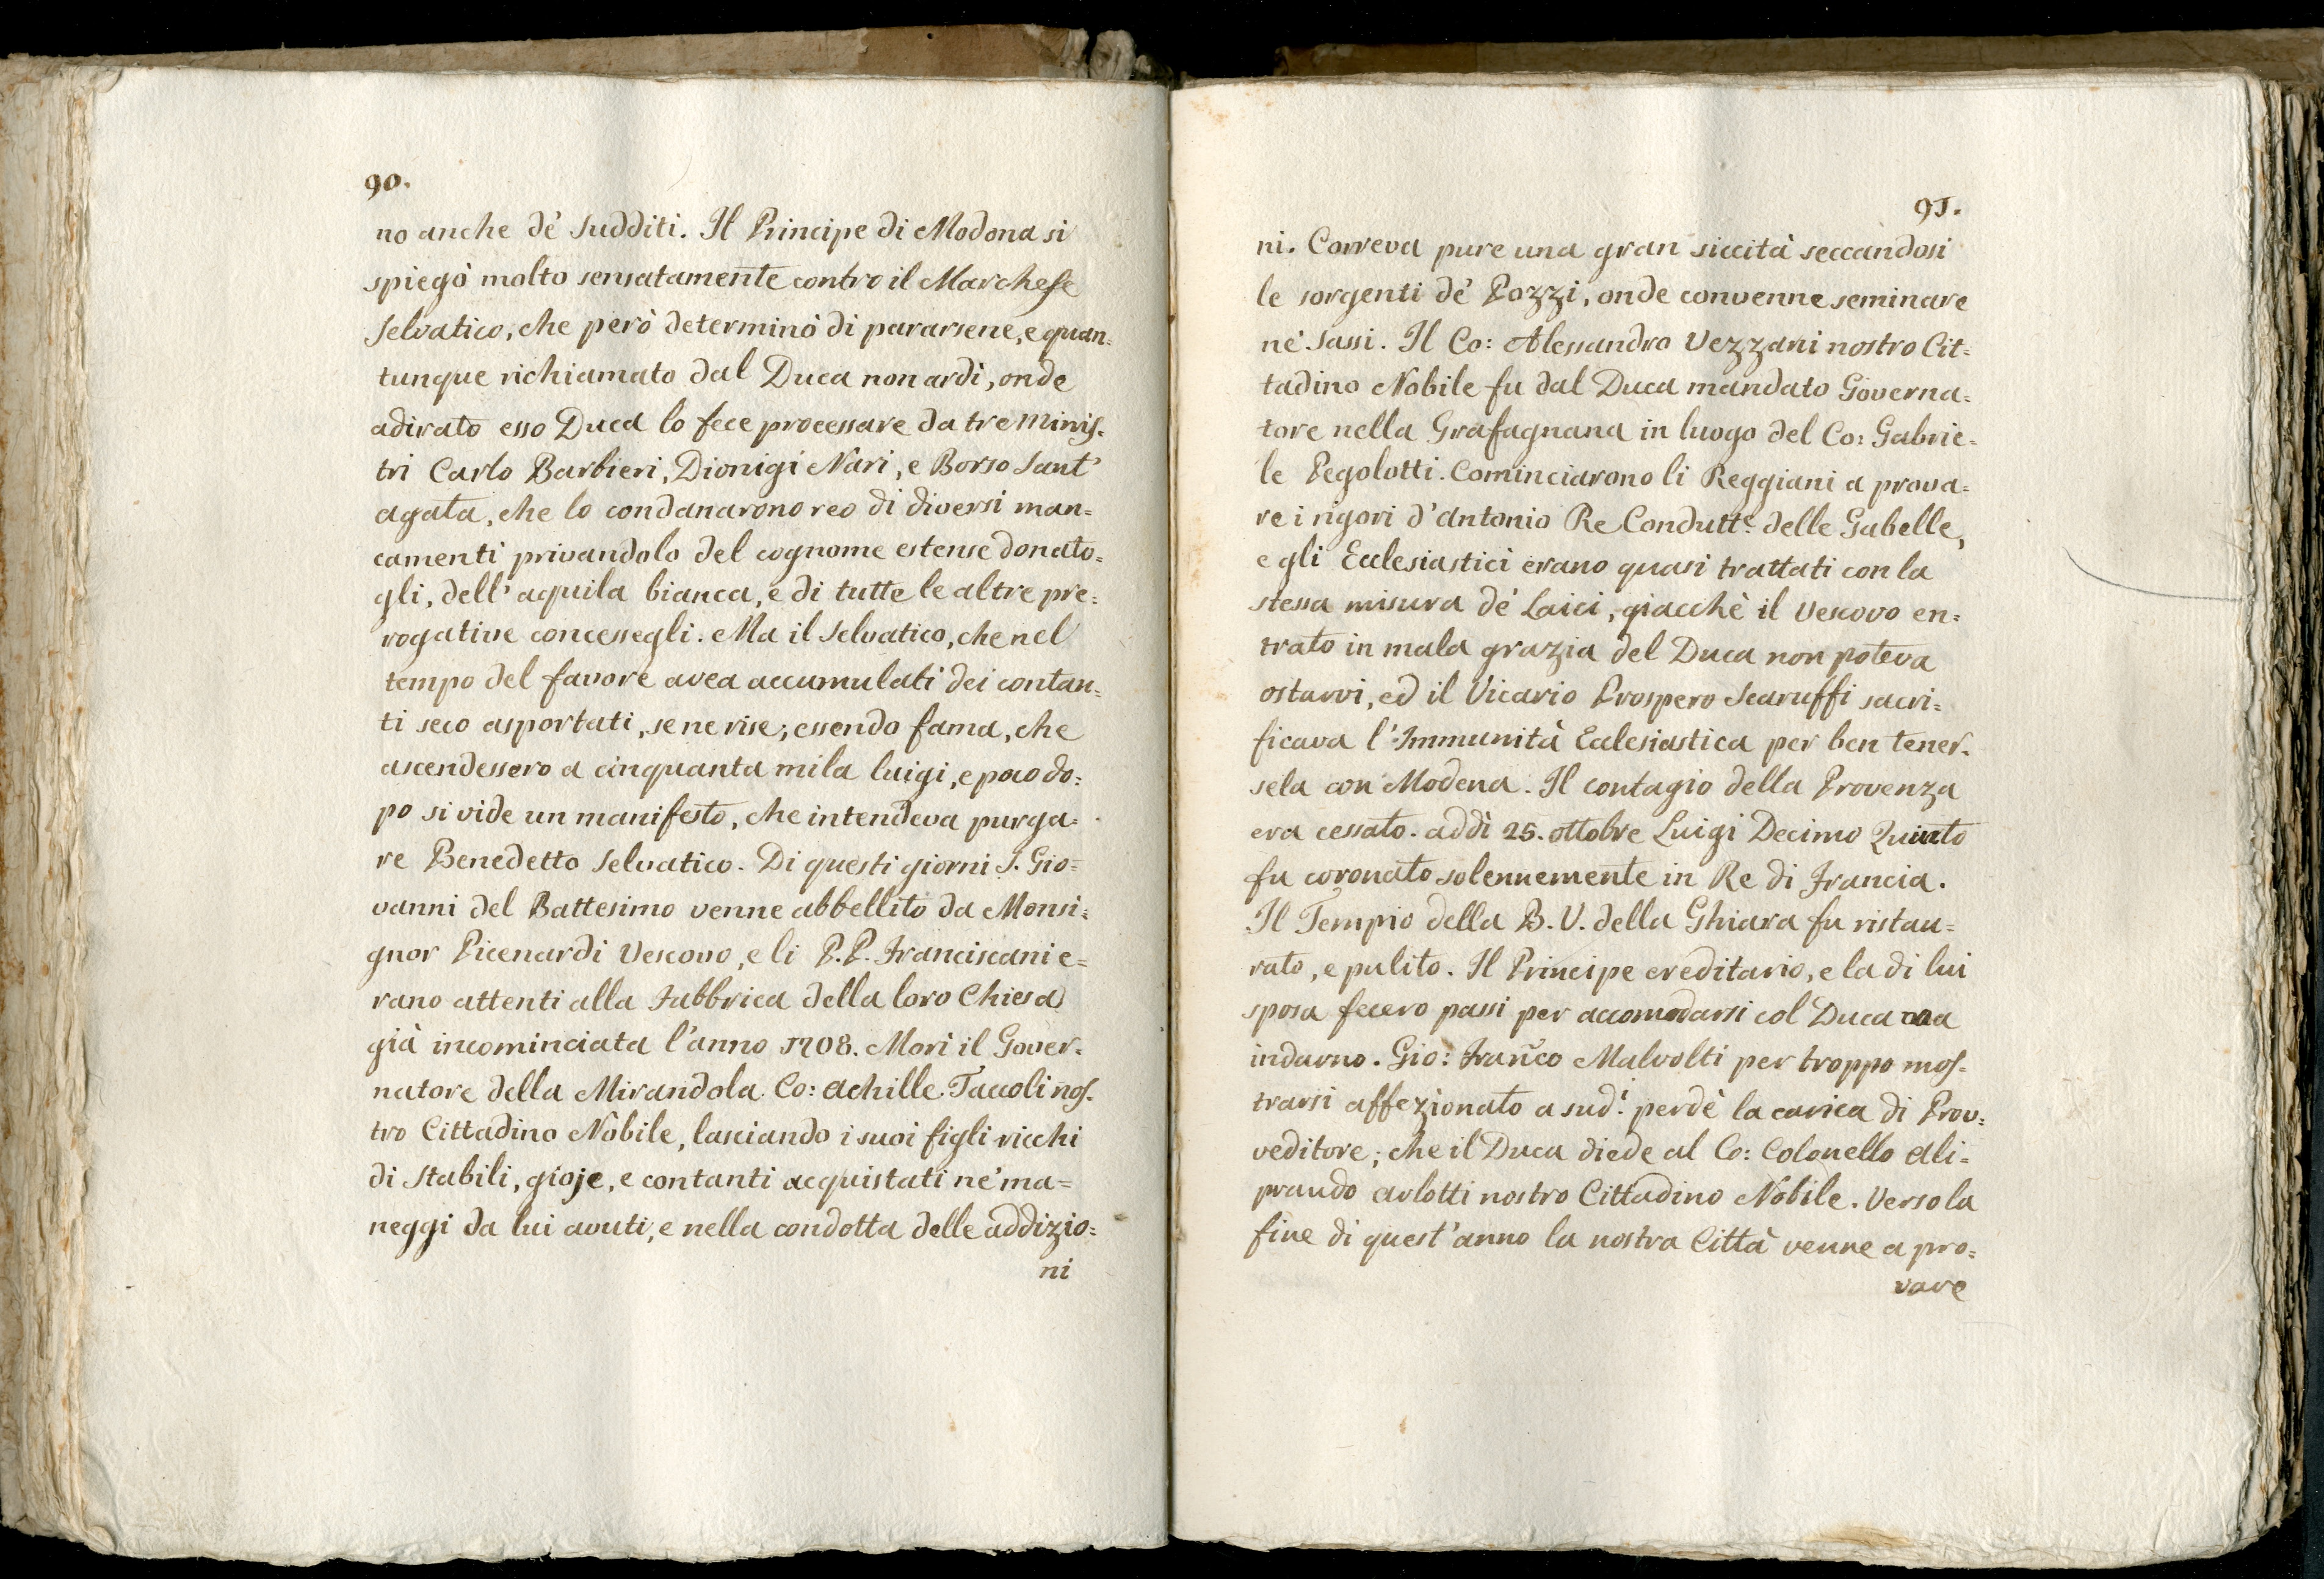 90.
no anche de' Sudditi. Il Principe di Modona si
spiegò molto sensatamente contro il Marchese
Selvatico, che però determinò di pararsene, e quan-
tunque richiamato dal Duca non ardì, onde
adirato esso Duca lo fece processare da tre Minis-
tri Carlo Barbieri, Dionigi Nari, e Borso Sant'
agata, che lo condanarono reo di diversi man=
camenti privandolo del cognome estense donato=
gli, dell'aquila bianca, e di tutte le altre pre=
rogative concessegli. Ma il Selvatico, che nel
tempo del favore avea accumulati dei contan=
ti seco asportati, se ne rise; essendo fama, che
ascendessero a cinquanta mila luigi, e poco do=
po si vide un manifesto, che intendeva purga=
re Benedetto Selvatico. Di questi giorni S. Gio=
vanni del Battesimo venne abbellito da Monsi=
gnor Picenardi Vescovo, e li P.P. Franciscani e=
rano attenti alla Fabbrica della loro Chiesa
già incominciata l'anno 1708. Morì il Gover=
natore della Mirandola Co: Achille Taccoli nos-
tro Cittadino Nobile, lasciando i suoi figli ricchi
di Stabili, gioje, e contanti acquistati ne' ma=
neggi da lui avuti, e nella condotta delle addizio=
ni
91.
ni. Correva pure una gran siccità seccandosi
le sorgenti de' Pozzi, onde convenne seminare
ne' Sassi. Il Co: Alessandro Vezzani nostro Cit=
tadino Nobile fu dal Duca mandato Governa=
tore nella Grafagnana in luogo del Co: Gabrie=
le Pegolotti. Cominciarono li Reggiani a prova=
re i rigori d'Antonio Re Condutt.e delle Gabelle,
e gli Ecclesiastici erano quasi trattati con la
stessa misura de' Laici, giacchè il Vescovo en=
trato in mala grazia del Duca non poteva
ostarvi, ed il Vicario Prospero Scaruffi sacri=
ficava l'Immunità Ecclesiastica per ben tener-
sela con Modena. Il contagio della Provenza
era cessato. addì 25. ottobre Luigi Decimo Quinto
fu coronato solennemente in Re di Francia.
Il Tempio della B. V. della Ghiara fu ristau=
rato, e pulito. Il Principe ereditario, e la di lui
sposa fecero passi per accomodarsi col Duca ma
indarno. Gio: Franco Malvolti per troppo mos-
trarsi affezionato a sud.i perdè la carica di Prov=
veditore; che il Duca diede al Co: Colonello Ali=
prando Arlotti nostro Cittadino Nobile. Verso la
fine di quest'anno la nostra Città venne a pro=
vare